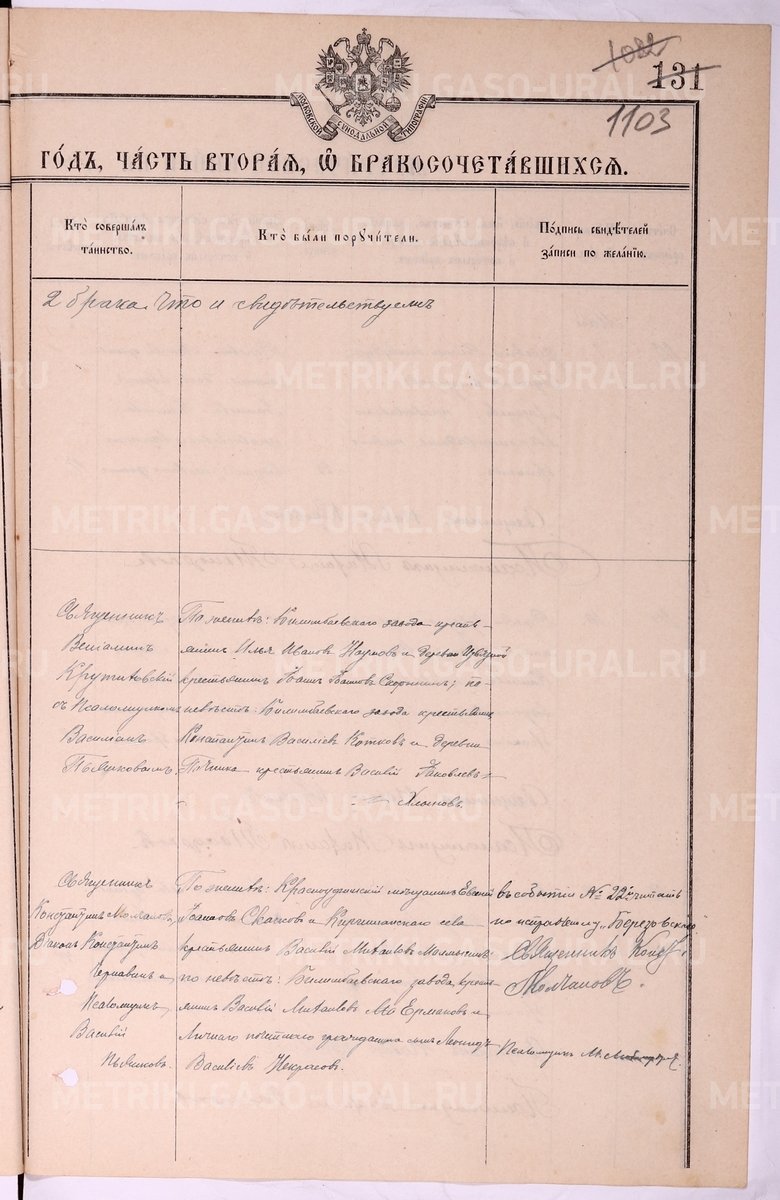 1082
131
1103
МОСКОВСКОЙ СѴНОДАЛЬНОЙ ТИПОГРАФІИ
ГО́ДЪ, ЧА́СТЬ ВТОРА́Я, Ѽ БРАКОСОЧЕТА́ВШИХСЯ.
Кто̀ совершалъ
та́инство.
Кто̀ бы́ли порꙋчи́тели.
По́дпись свидѣ́телей
за́писи по жела́нїю.
2 брака. Что и свидѣтельствуемъ
Священникъ
Веніаминъ
Крутиховскій
съ Псаломщикомъ
Василіемъ
Пьянковымъ
По женихѣ: Билимбаевскаго завода кресть-
янинъ Илья Ивановъ Наумовъ и деревни
крестьянинъ Іоаннъ; по
невѣстѣ: Билимбаевскаго завода крестьянинъ
Константинъ Васильевъ Котковъ и деревни
Починка крестьянинъ Василій Яковлевъ
Хломовъ.
Священникъ
Константинъ Молчановъ,
Діаконъ Константинъ
Чернавинъ и
Псаломщикъ
Василій
Пьянковъ.
По женихѣ: Красноуфимскій мѣщанинъ Евгеній
Іоанновъ и Киргишанскаго села
крестьянинъ Василій Михаиловъ
по невѣстѣ: Билимбаевскаго завода кресть-
янинъ Василій Михаиловъ Ермаковъ и
личнаго почетнаго гражданина сынъ Леонидъ
Васильевъ Некрасовъ.
въ событіи № 22й читать
по исправленному „Березовскаго
Священникъ Конст.
Молчановъ.
Псаломщикъ
METRIKI.GASO-URAL.RU